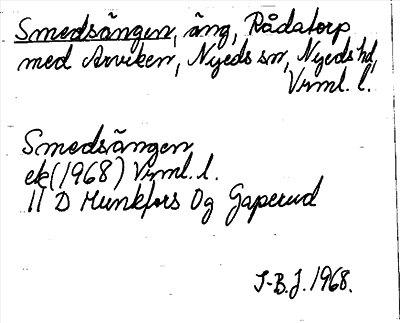 Smedsängen, äng, Rådatorp
med Arviken, Nyeds sn, Nyeds hd,
Vrml. l.
Smedsängen
ek (1968) Vrml. l.
11 D Munkfors 0g Gaperud
I-B.J. 1968.